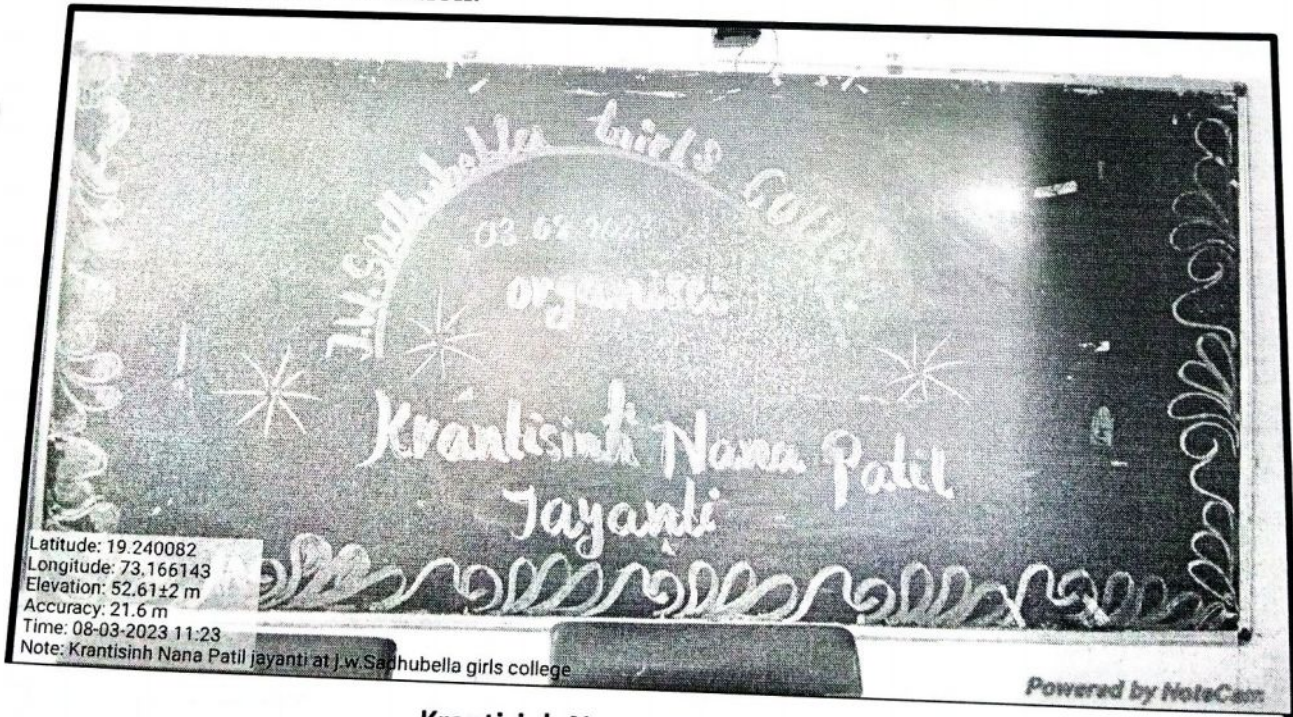 J.W. Sadhubella Girls College
organise
Krantisinh Nana Patil
Jayanti
Latitude: 19.240082
Longitude: 73.166143
Elevation: 52.61±2 m
Accuracy: 21.6 m
Time: 08-03-2023 11:23
Note: Krantisinh Nana Patil jayanti at j.w.Sadhubella girls college
Powered by NoteCam